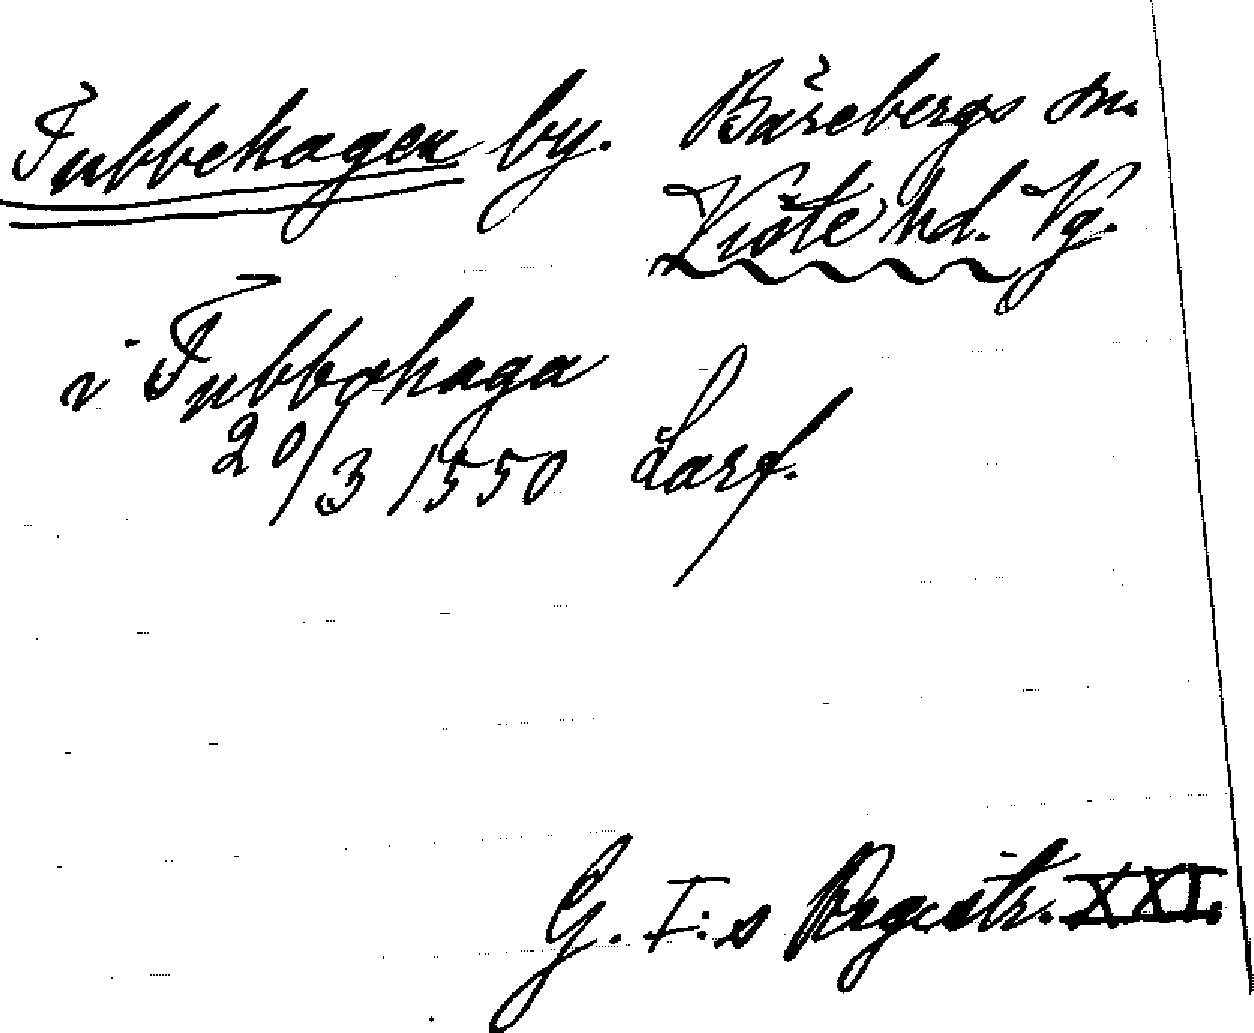 Tubbehagen by. Bärebergs sn.
Viste hd. Vg.
i Tubbahaga
20/3 1550 Larf.
G. I:s Registr. XXI.